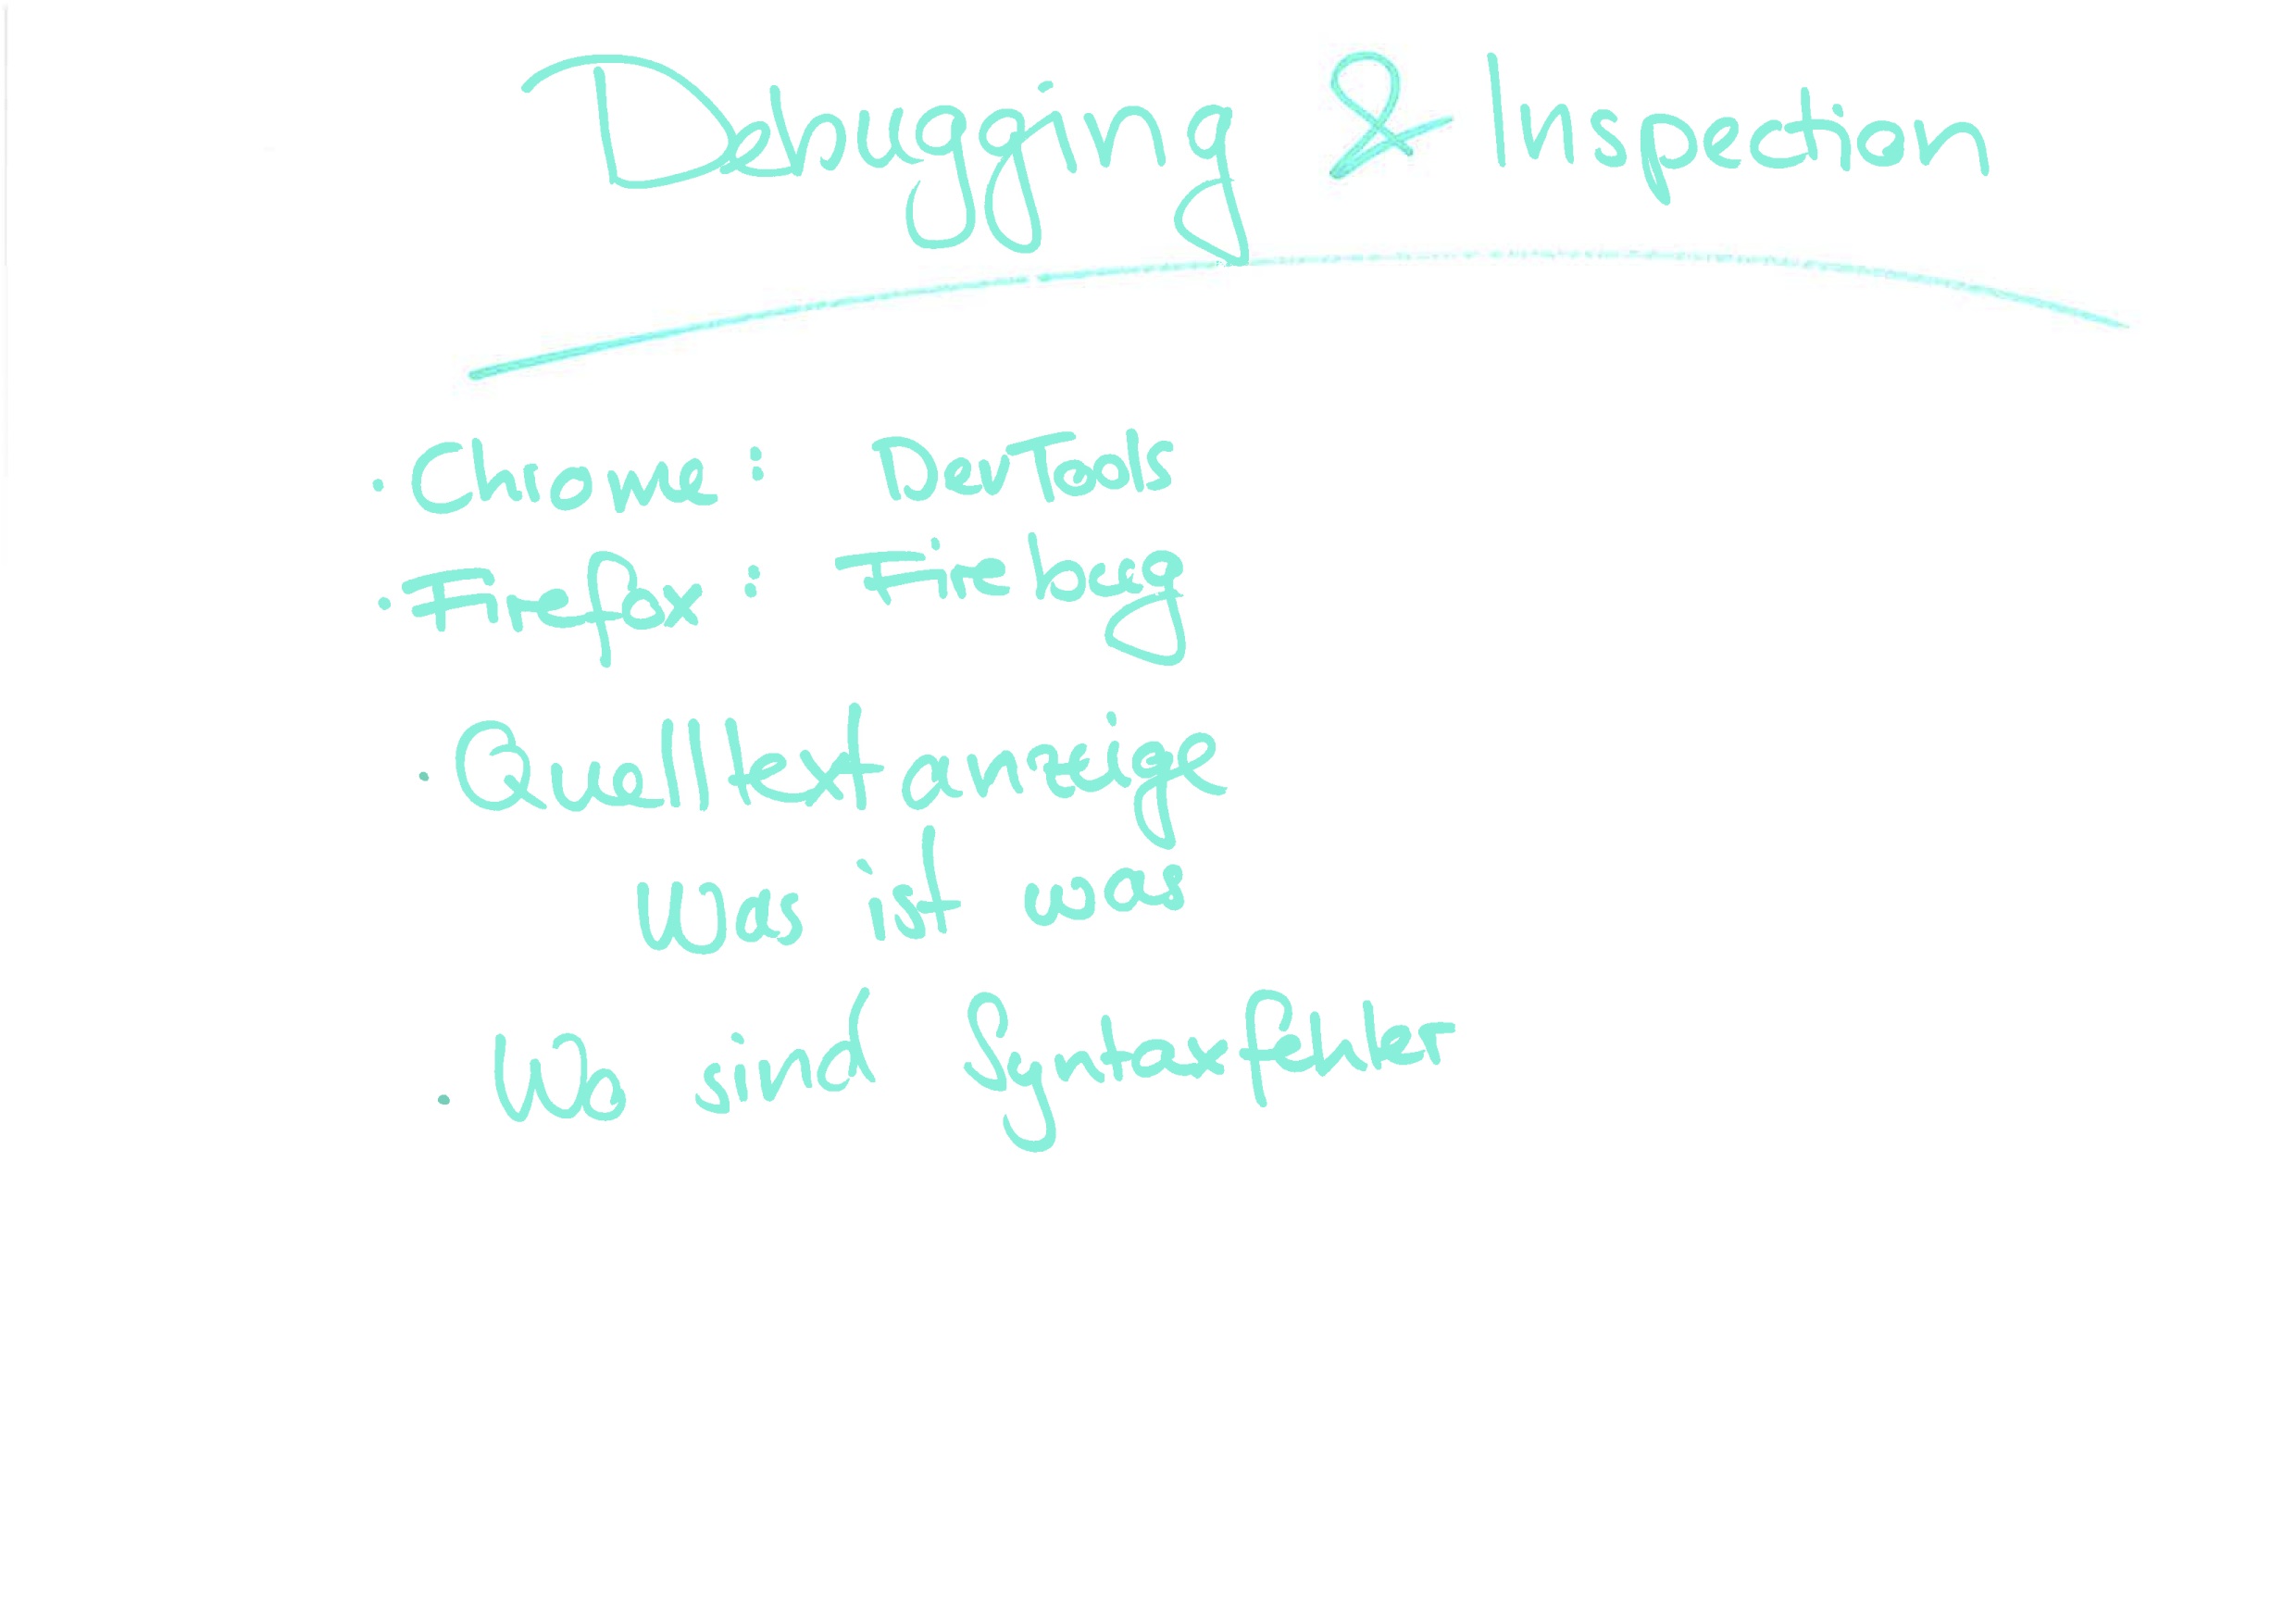 Debugging & Inspection
· Chrome: DevTools
· Firefox: Firebug
· Quelltextanzeige
Was ist was
· Wo sind Syntaxfehler